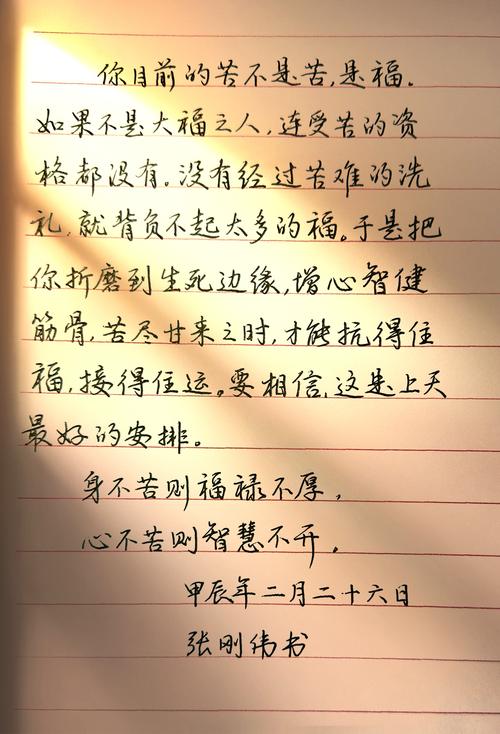 你目前的苦不是苦,是福.
如果不是大福之人,连受苦的资
格都没有。没有经过苦难的洗
礼,就背负不起太多的福。于是把
你折磨到生死边缘,增心智健
筋骨,苦尽甘来之时,才能抗得住
福,接得住运。要相信,这是上天
最好的安排。
身不苦则福禄不厚,
心不苦则智慧不开。
甲辰年二月二十六日
张刚伟书